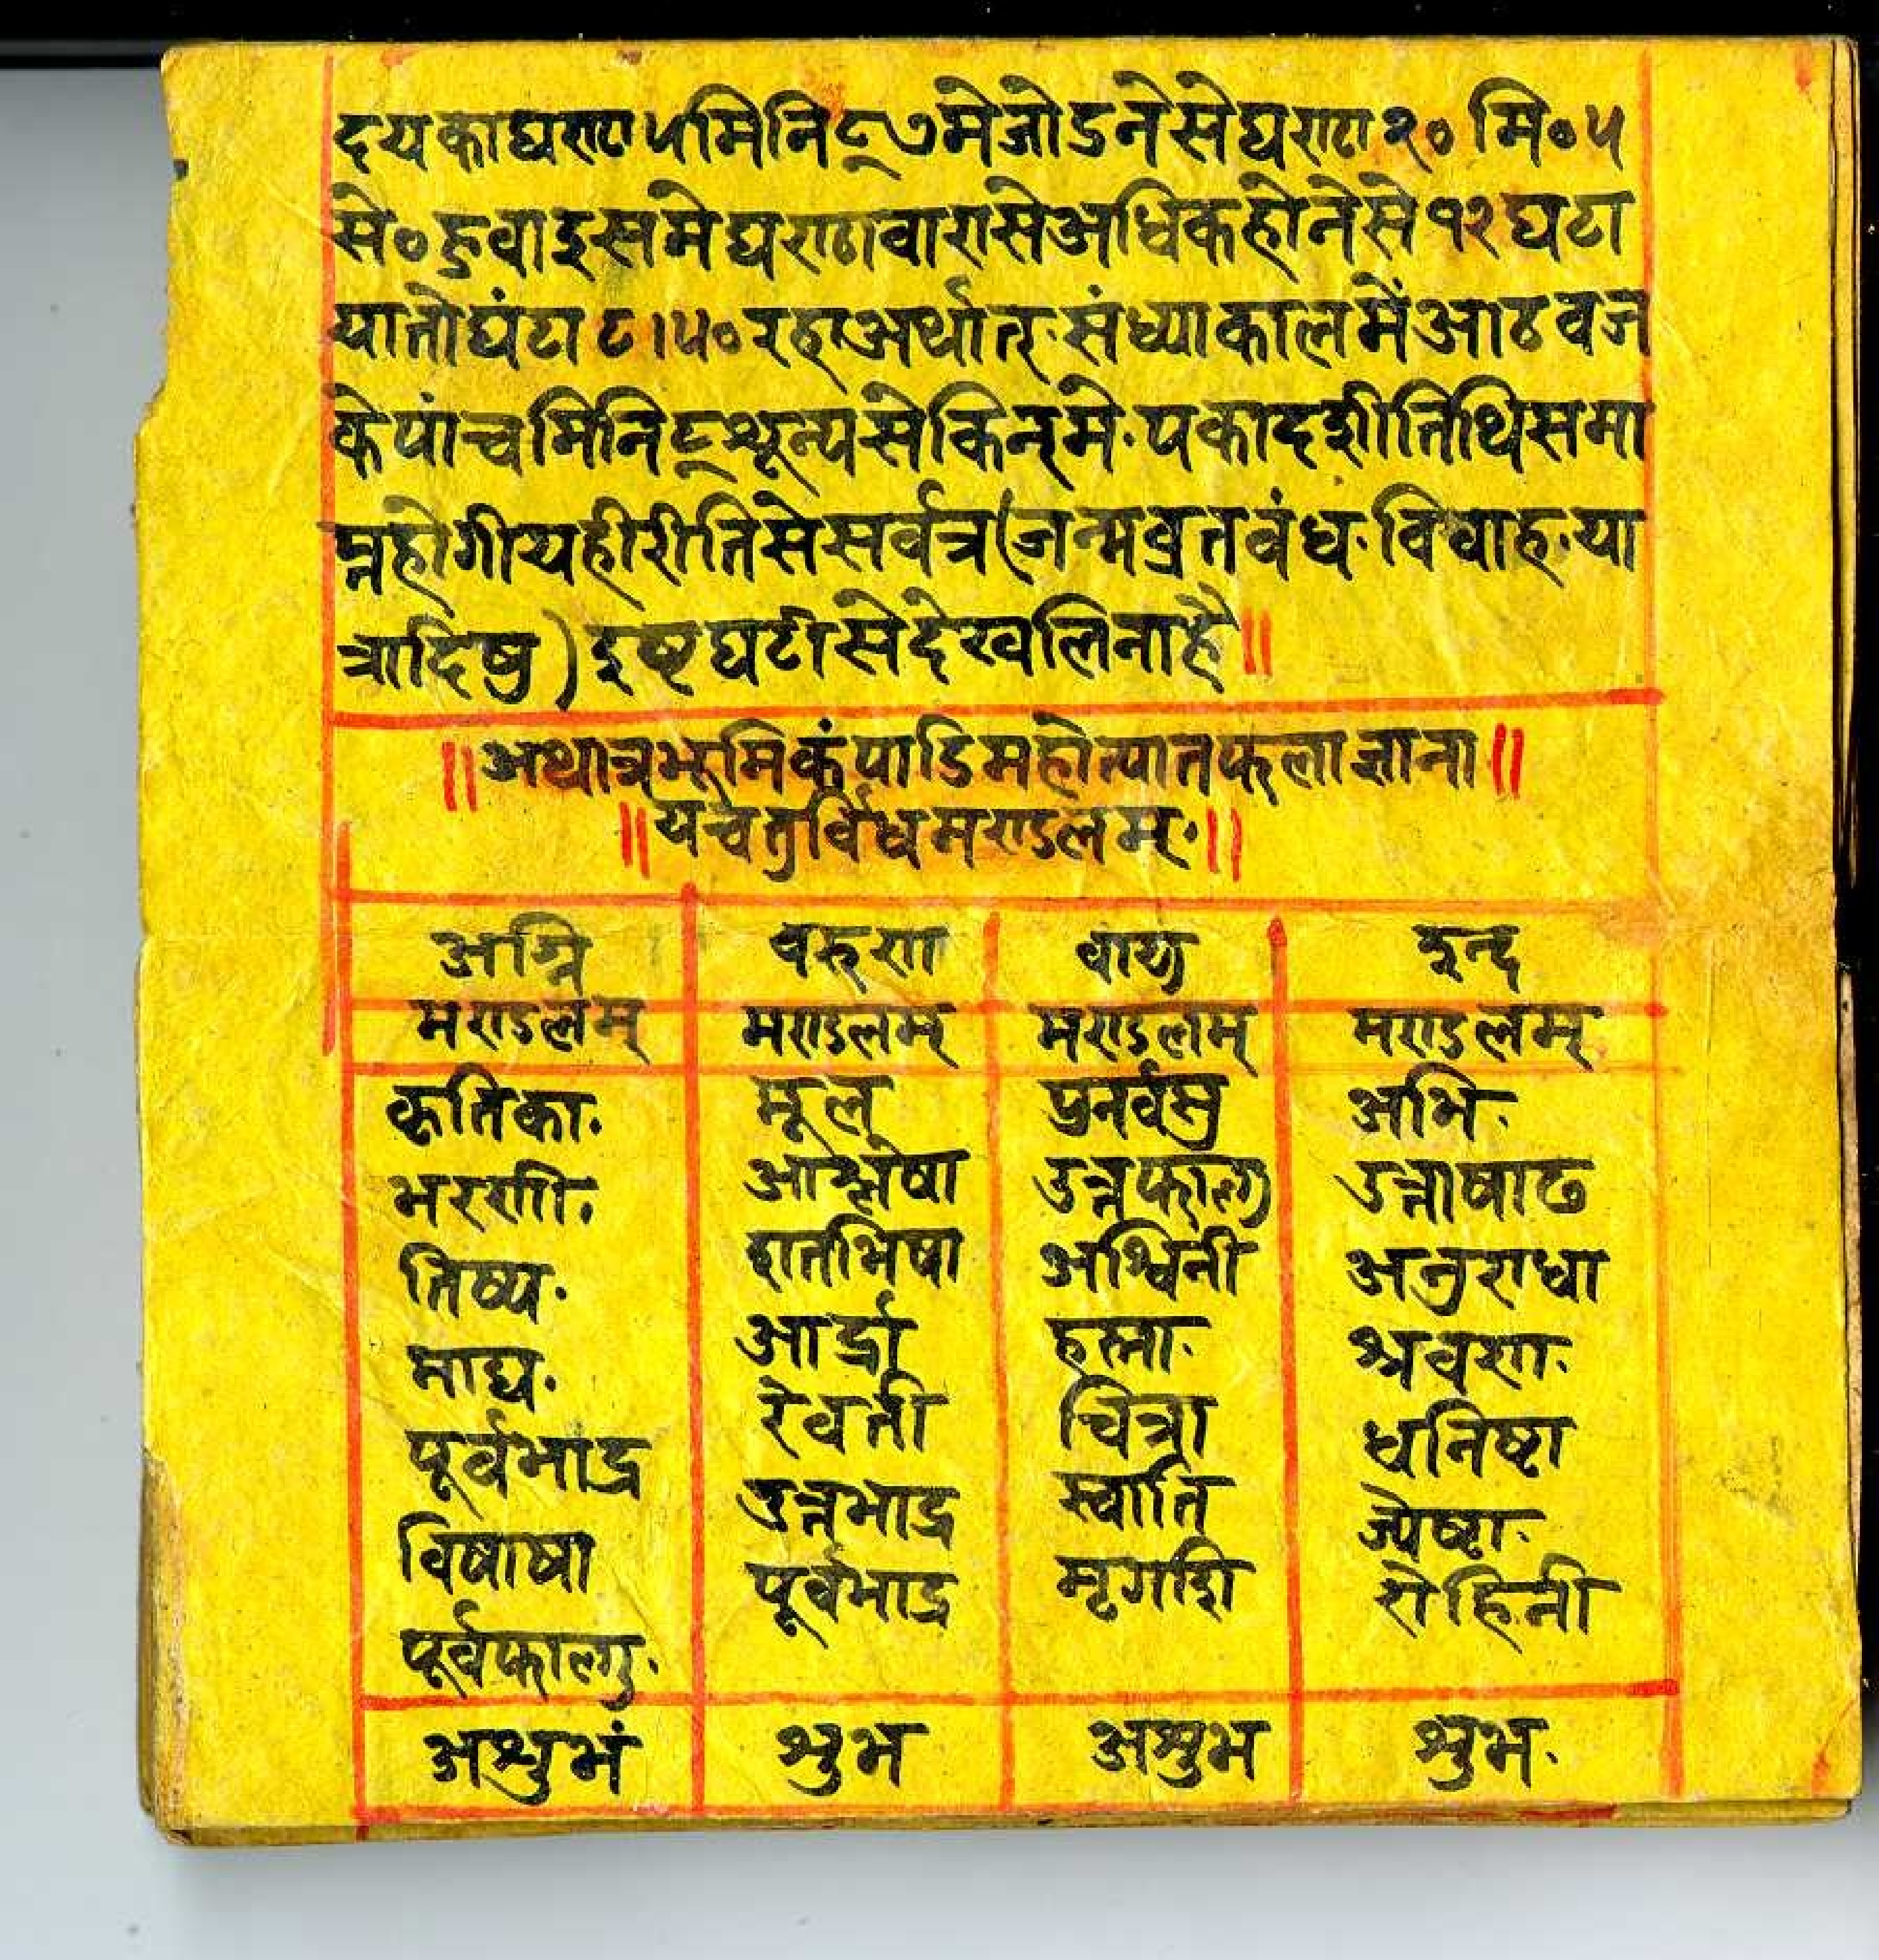 दयकाघण्टा ५ मिनिट् ७ मे जोडने से घण्टा २० मि० ५
से० हुवा इसमे घण्टा वारा से अधिक होने से १२ घटा
या तो घंटा ८।५० रहा अर्थात् संध्याकाल में आठ वज
के पांच मिनिट् शून्य सेकिन् मे· एकादशी तिथि समा
प्त होगी यही रीति से सर्वत्र (जन्म व्रतवंध· विवाह·या
त्रादिषु) इष्ट घटी से देखलिना है॥
॥अथात्र भूमिकंपादि महोत्पातफलाज्ञाना॥
॥य चतुर्विधमण्डलम्·॥
अग्नि वरुण वायु इन्द्र
मण्डलम् मण्डलम् मण्डलम् मण्डलम्
कृतिका· मूल पुनर्वसु अभि·
भरणी· आश्लेषा उत्रफाल्गु उत्राषाढ
तिष्य· शतभिषा अश्विनी अनुराधा
माघ· आर्द्रा हस्ता· श्रवण·
पूर्वभाद्र रेवती चित्रा धनिष्टा
विषाषा उत्रभाद्र स्वाति ज्येष्टा·
पूर्वफाल्गु· पूर्वभाद्र मृगशि रोहिनी
अशुभं शुभ अशुभ शुभ·